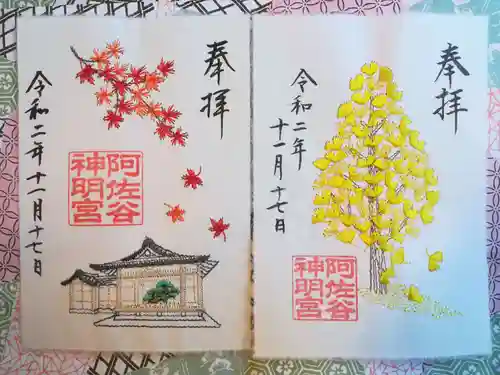 奉拝
阿佐谷
神明宮
令和二年十一月十七日
奉拝
令和二年
十一月十七日
阿佐谷
神明宮